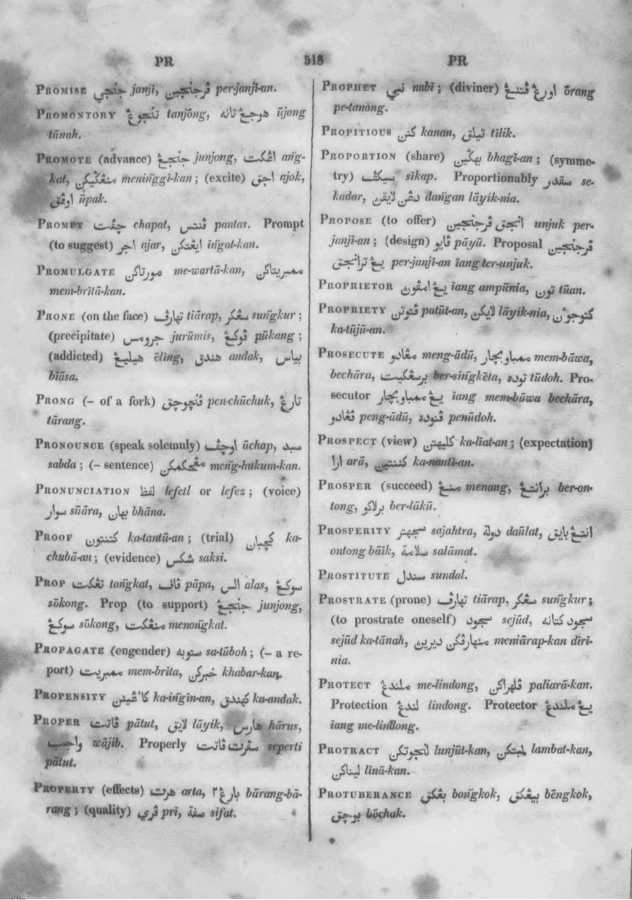 PR 518 PR
PROMISE جنجي janji, قرجنجين per-janji-an.
PROMONTORY تنجوڠ tanjōng, هوجڠ تانه ūjong
tānah.
PROMOTE (advance) جنجڠ junjong, اڠكت ang-
kat, مننڬيكن meninggi-kan; (excite) اجق ajok,
اوڤق ūpak.
PROMPT چڤت chapat, ڤنتس pantas. Prompt
(to suggest) اجر ajar, ايڠتكن ingat-kan.
PROMULGATE مورتاكن me-wartā-kan, ممبريتاكن
mem-brītā-kan.
PRONE (on the face) تيارڤ tiārap, سڠكر sungkur;
(precipitate) جرومس jurūmis, ڤوكڠ pūkang;
(addicted) هيليڠ ēling, هندق andak, بياس
biāsa.
PRONG (– of a fork) ڤنچوچق pen-chūchuk, تارڠ
tārang.
PRONOUNCE (speak solemnly) اوچڤ ūchap, سبد
sabda; (– sentence) مڠحكمكن meng-hukum-kan.
PRONUNCIATION لفظ lefetl or lefez; (voice)
سوار sūāra, بهان bhāna.
PROOF كتنتون ka-tantū-an; (trial) كچبان ka-
chubā-an; (evidence) شكس saksi.
PROP تڠكت tongkat, ڤاڤ pāpa, الس alas, سوكڠ
sōkong. Prop (to support) جنجڠ junjong,
سوكڠ sōkong, منڠكت menongkat.
PROPAGATE (engender) ستوبه sa-tūboh; (– a re-
port) ممبريت mem-brita, خبركن khabar-kan.
PROPENSITY كاڠينن ka-ingin-an, كهندق ka-andak.
PROPER ڤاتت pātut, لايق lāyik, هارس hārus,
واجب wājib. Properly سڤرت ڤاتت seperti
pātut.
PROPERTY (effects) هرت arta, بارڠ٢ bārang-bā-
rang; (quality) ڤري pri, صفة sifat.
PROPHET نبي nabī; (diviner) اورڠ ڤتنڠ ōrang
pe-tanōng.
PROPITIOUS كنن kanan, تيلق tilik.
PROPORTION (share) بهڬين bhagī-an; (symme-
try) سيكڤ sikap. Proportionably سقدر se-
kadar, دڠن لايقن dangan lāyik-nia.
PROPOSE (to offer) انجق ڤرجنجين unjuk per-
janji-an; (design) ڤايو pāyū. Proposal ڤرجنجين
يڠ ترانجق per-janji-an iang ter-unjuk.
PROPRIETOR يڠ امڤون iang ampūnia, تون tūan.
PROPRIETY ڤتوتن patūt-an, لايكن lāyik-nia, كتوجوئن
ka-tūjū-an.
PROSECUTE مڠادو meng-ādū, ممباو بچار mem-bāwa,
bechāra, برسڠكيت ber-singkēta, توده tūdoh. Pro-
secutor يڠ ممباو بچار iang mem-bāwa bechāra,
ڤڠادو peng-ādū, ڤنوده penūdoh.
PROSPECT (view) كليهتن ka-liat-an; (expectation)
ارا arā, كننتين ka-nanti-an.
PROSPER (succeed) منڠ menang, برانتڠ ber-on-
tong, برلاكو ber-lākū.
PROSPERITY سجهتر sajahtra, دولة daūlat, انتڠ بايق
ontong bāik, سلامة salāmat.
PROSTITUTE سندل sundal.
PROSTRATE (prone) تيارڤ tiārap, سڠكر sungkur;
(to prostrate oneself) سجود sejūd, سجود كتانه
sejūd ka-tānah, منيارڤكن ديرين meniārap-kan dīri-
nia.
PROTECT ملندڠ me-lindong, ڤلهراكن paliarā-kan.
Protection لندڠ lindong. Protector يڠ ملندڠ
iang me-lindong.
PROTRACT لنجوتكن lunjūt-kan, لمبتكن lambat-kan,
ليناكن līnā-kan.
PROTUBERANCE بڠكق bongkok, بيڠكق bēngkok,
بوچق bōchak.